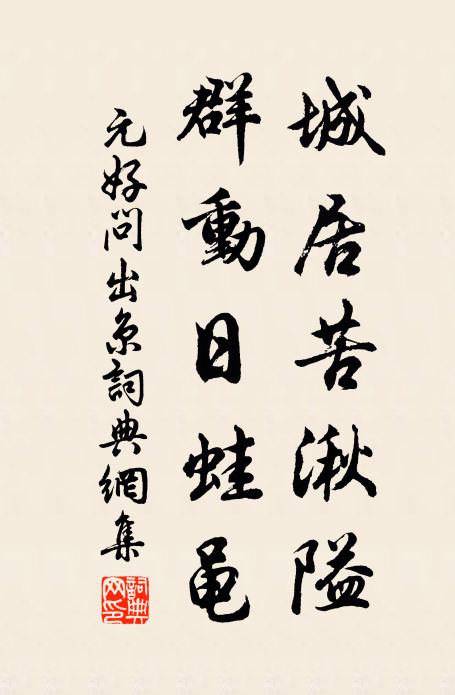 城居苦湫隘
群動日蛙黽
元好問出京詞典網集
詞典網印